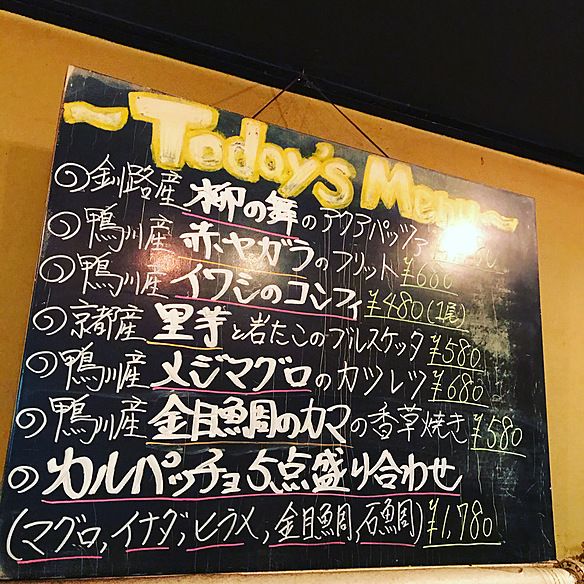 ~Today's Menu~
の釧路産 柳の舞のアクアパッツァ
の鴨川産 赤ヤガラのフリット ¥680
の鴨川産 イワシのコンフィ ¥480(1尾)
の京都産 里芋と岩だこのブルスケッタ ¥580
の鴨川産 メジマグロのカツレツ ¥680
の鴨川産 金目鯛のカマの香草焼き ¥580
のカルパッチョ5点盛り合わせ
(マグロ,イナダ,ヒラメ,金目鯛,石鯛) ¥1,780